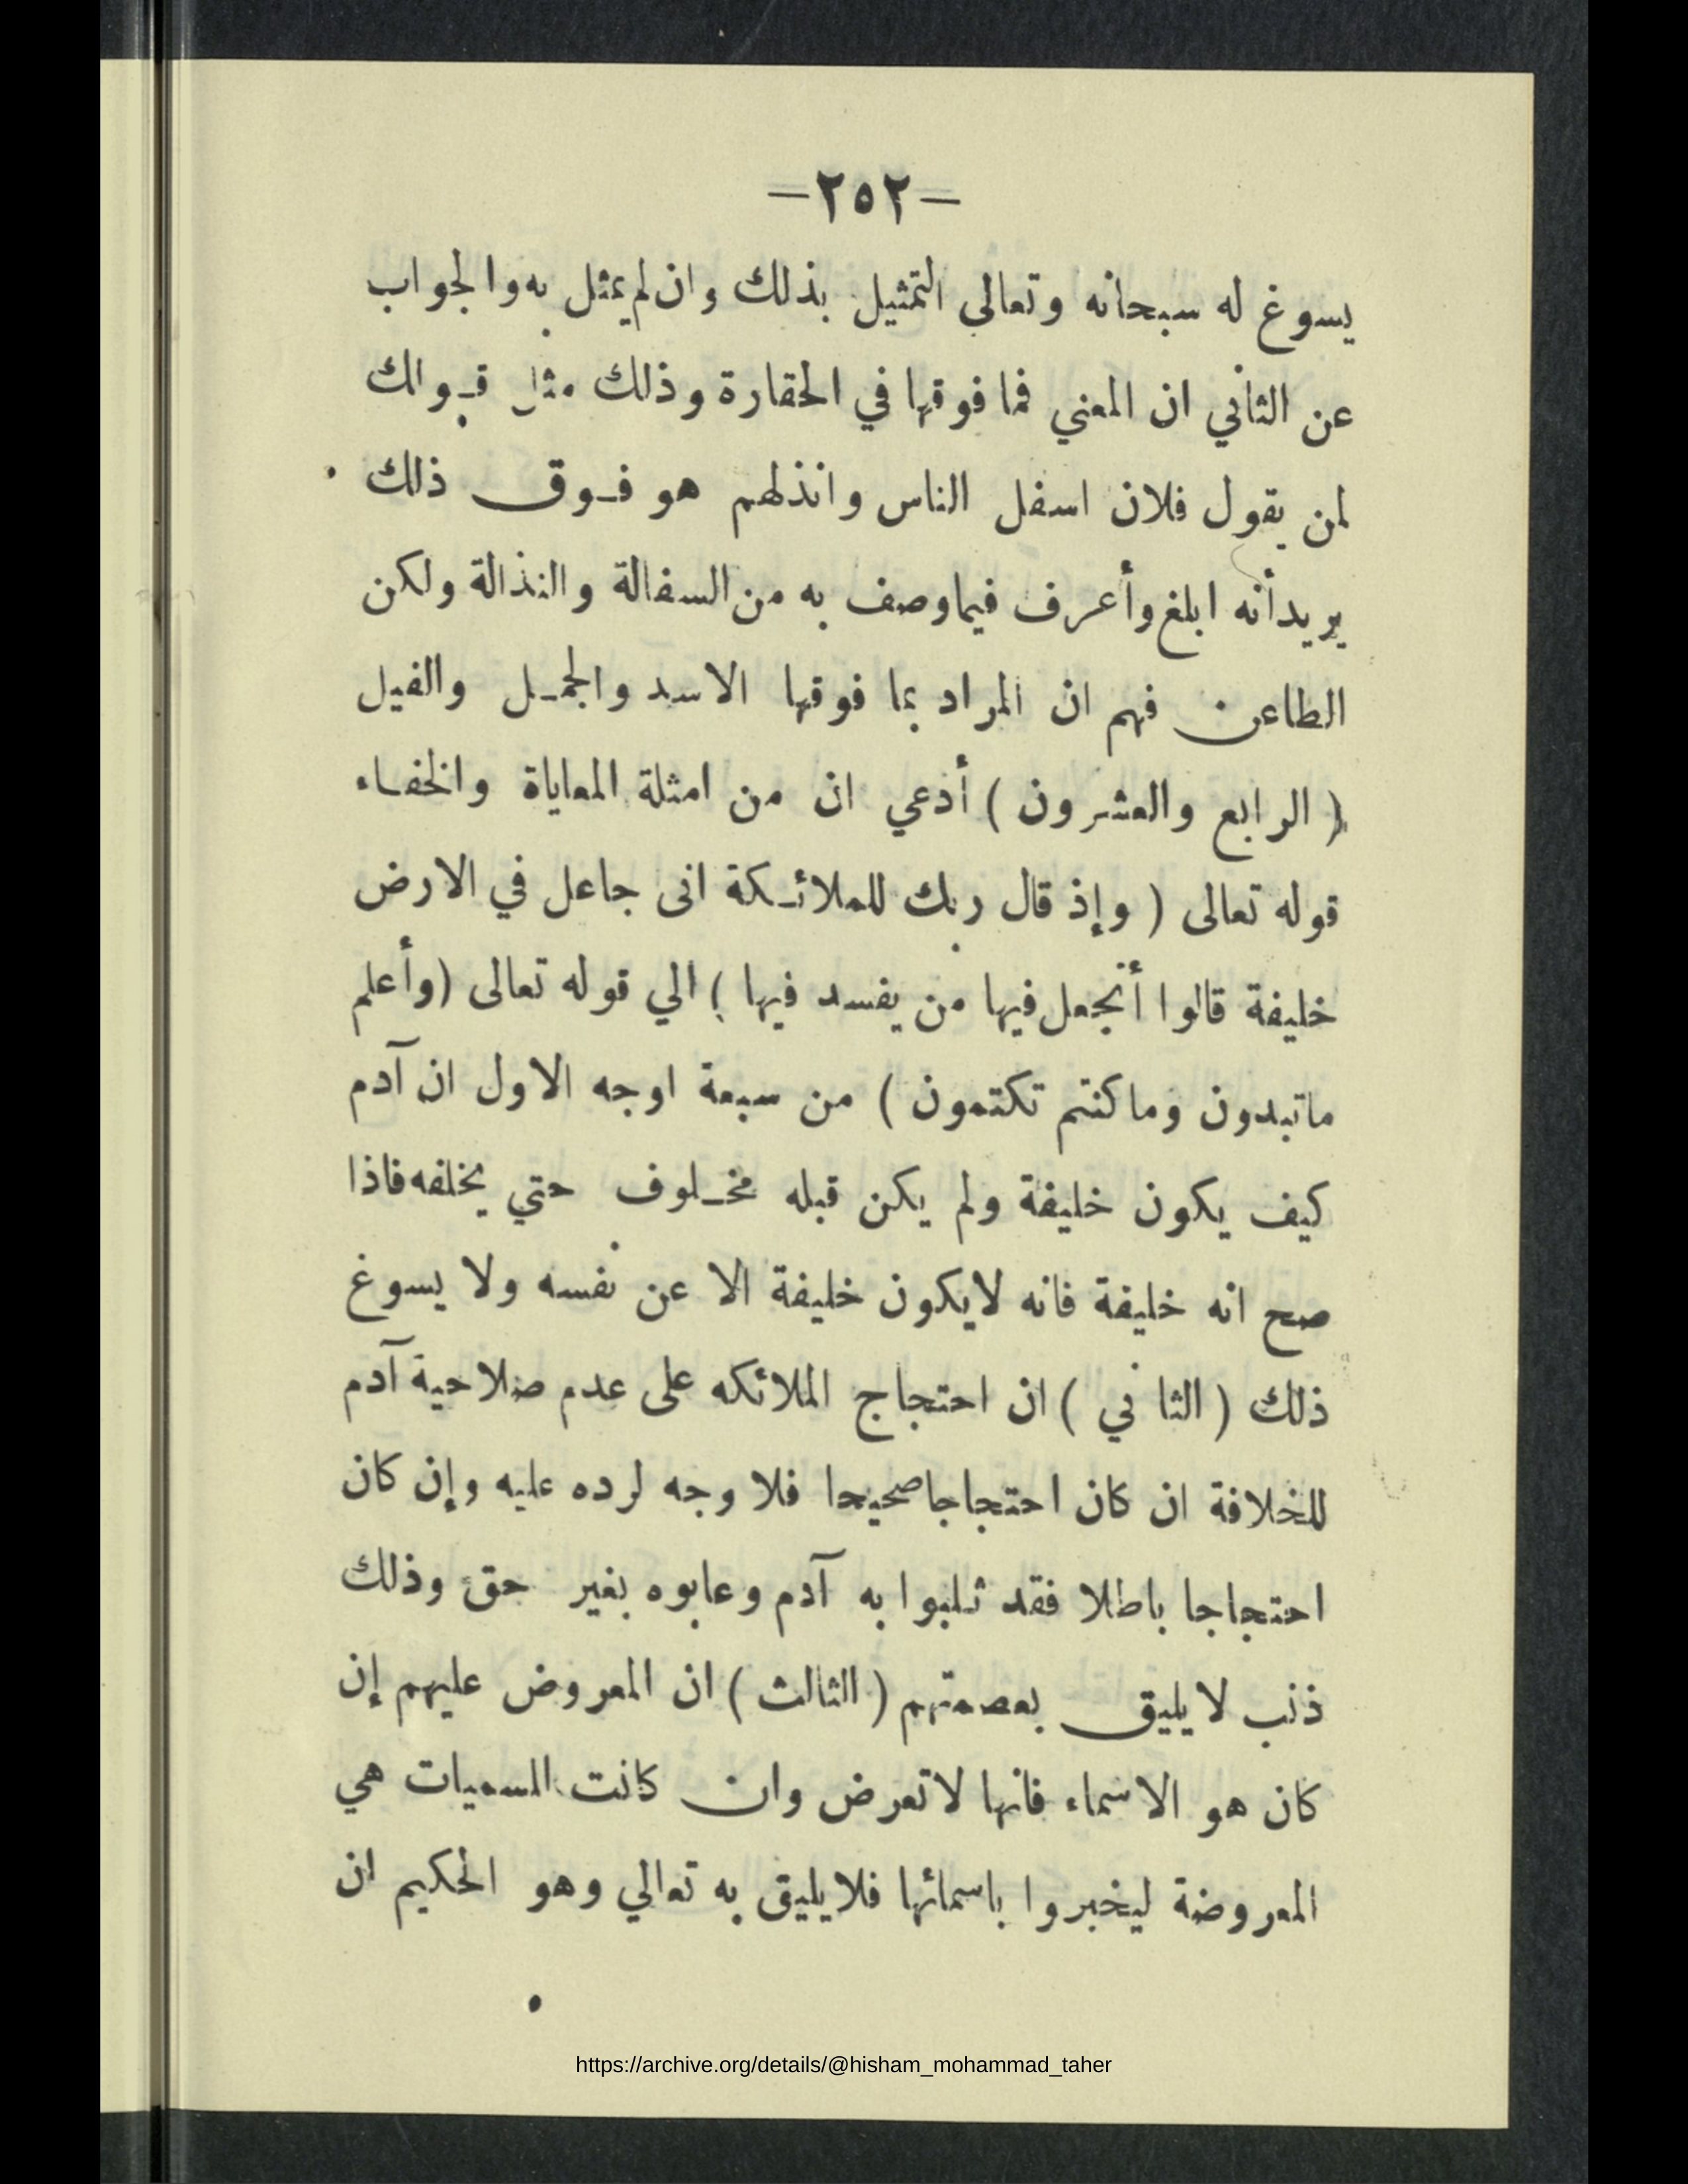 -٢٥٢-
يسوغ له سبحانه وتعالى التمثيل بذلك وان لم يمثل به والجواب
عن الثاني ان المعني فما فوقها في الحقارة وذلك مثل قـولك
لمن يقول فلان اسفل الناس وانذلهم هو فـوق ذلك
يريدأنه ابلغ وأعرف فيماوصف به من السفالة والنذالة ولكن
الطاعن فهم ان المراد بما فوقها الاسد والجمـل والفيل
( الرابع والعشرون ) أدعي ان من امثلة المعاياة والخفاء
قوله تعالى ( وإذ قال ربك للملائـكة انى جاعل في الارض
خليفة قالوا أتجعل فيها من يفسد فيها ) الي قوله تعالى (وأعلم
ماتبدون وماكنتم تكتمون ) من سبعة اوجه الاول ان آدم
كيف يكون خليفة ولم يكن قبله مخـلوف حتي يخلفه فاذا
صح انه خليفة فانه لايكون خليفة الا عن نفسه ولا يسوغ
ذلك ( الثاني ) ان احتجاج الملائكه على عدم صلاحية آدم
للخلافة ان كان احتجاجا صحيحا فلا وجه لرده عليه وإن كان
احتجاجا باطلا فقد ثلبوا به آدم وعابوه بغير حق وذلك
ذنب لا يليق بعصمتهم ( الثالث ) ان المعروض عليهم إن
كان هو الاسماء فانها لاتعرض وان كانت المسميات هي
المعروضة ليخبروا باسمائها فلا يليق به تعالي وهو الحكيم ان
https://archive.org/details/@hisham_mohammad_taher